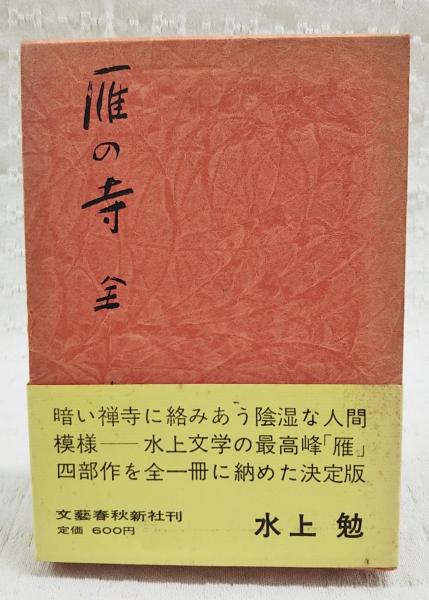 雁の寺 全
暗い禅寺に絡みあう陰湿な人間
模様──水上文学の最高峰「雁」
四部作を全一冊に納めた決定版
文藝春秋新社刊
定価 600円
水上 勉